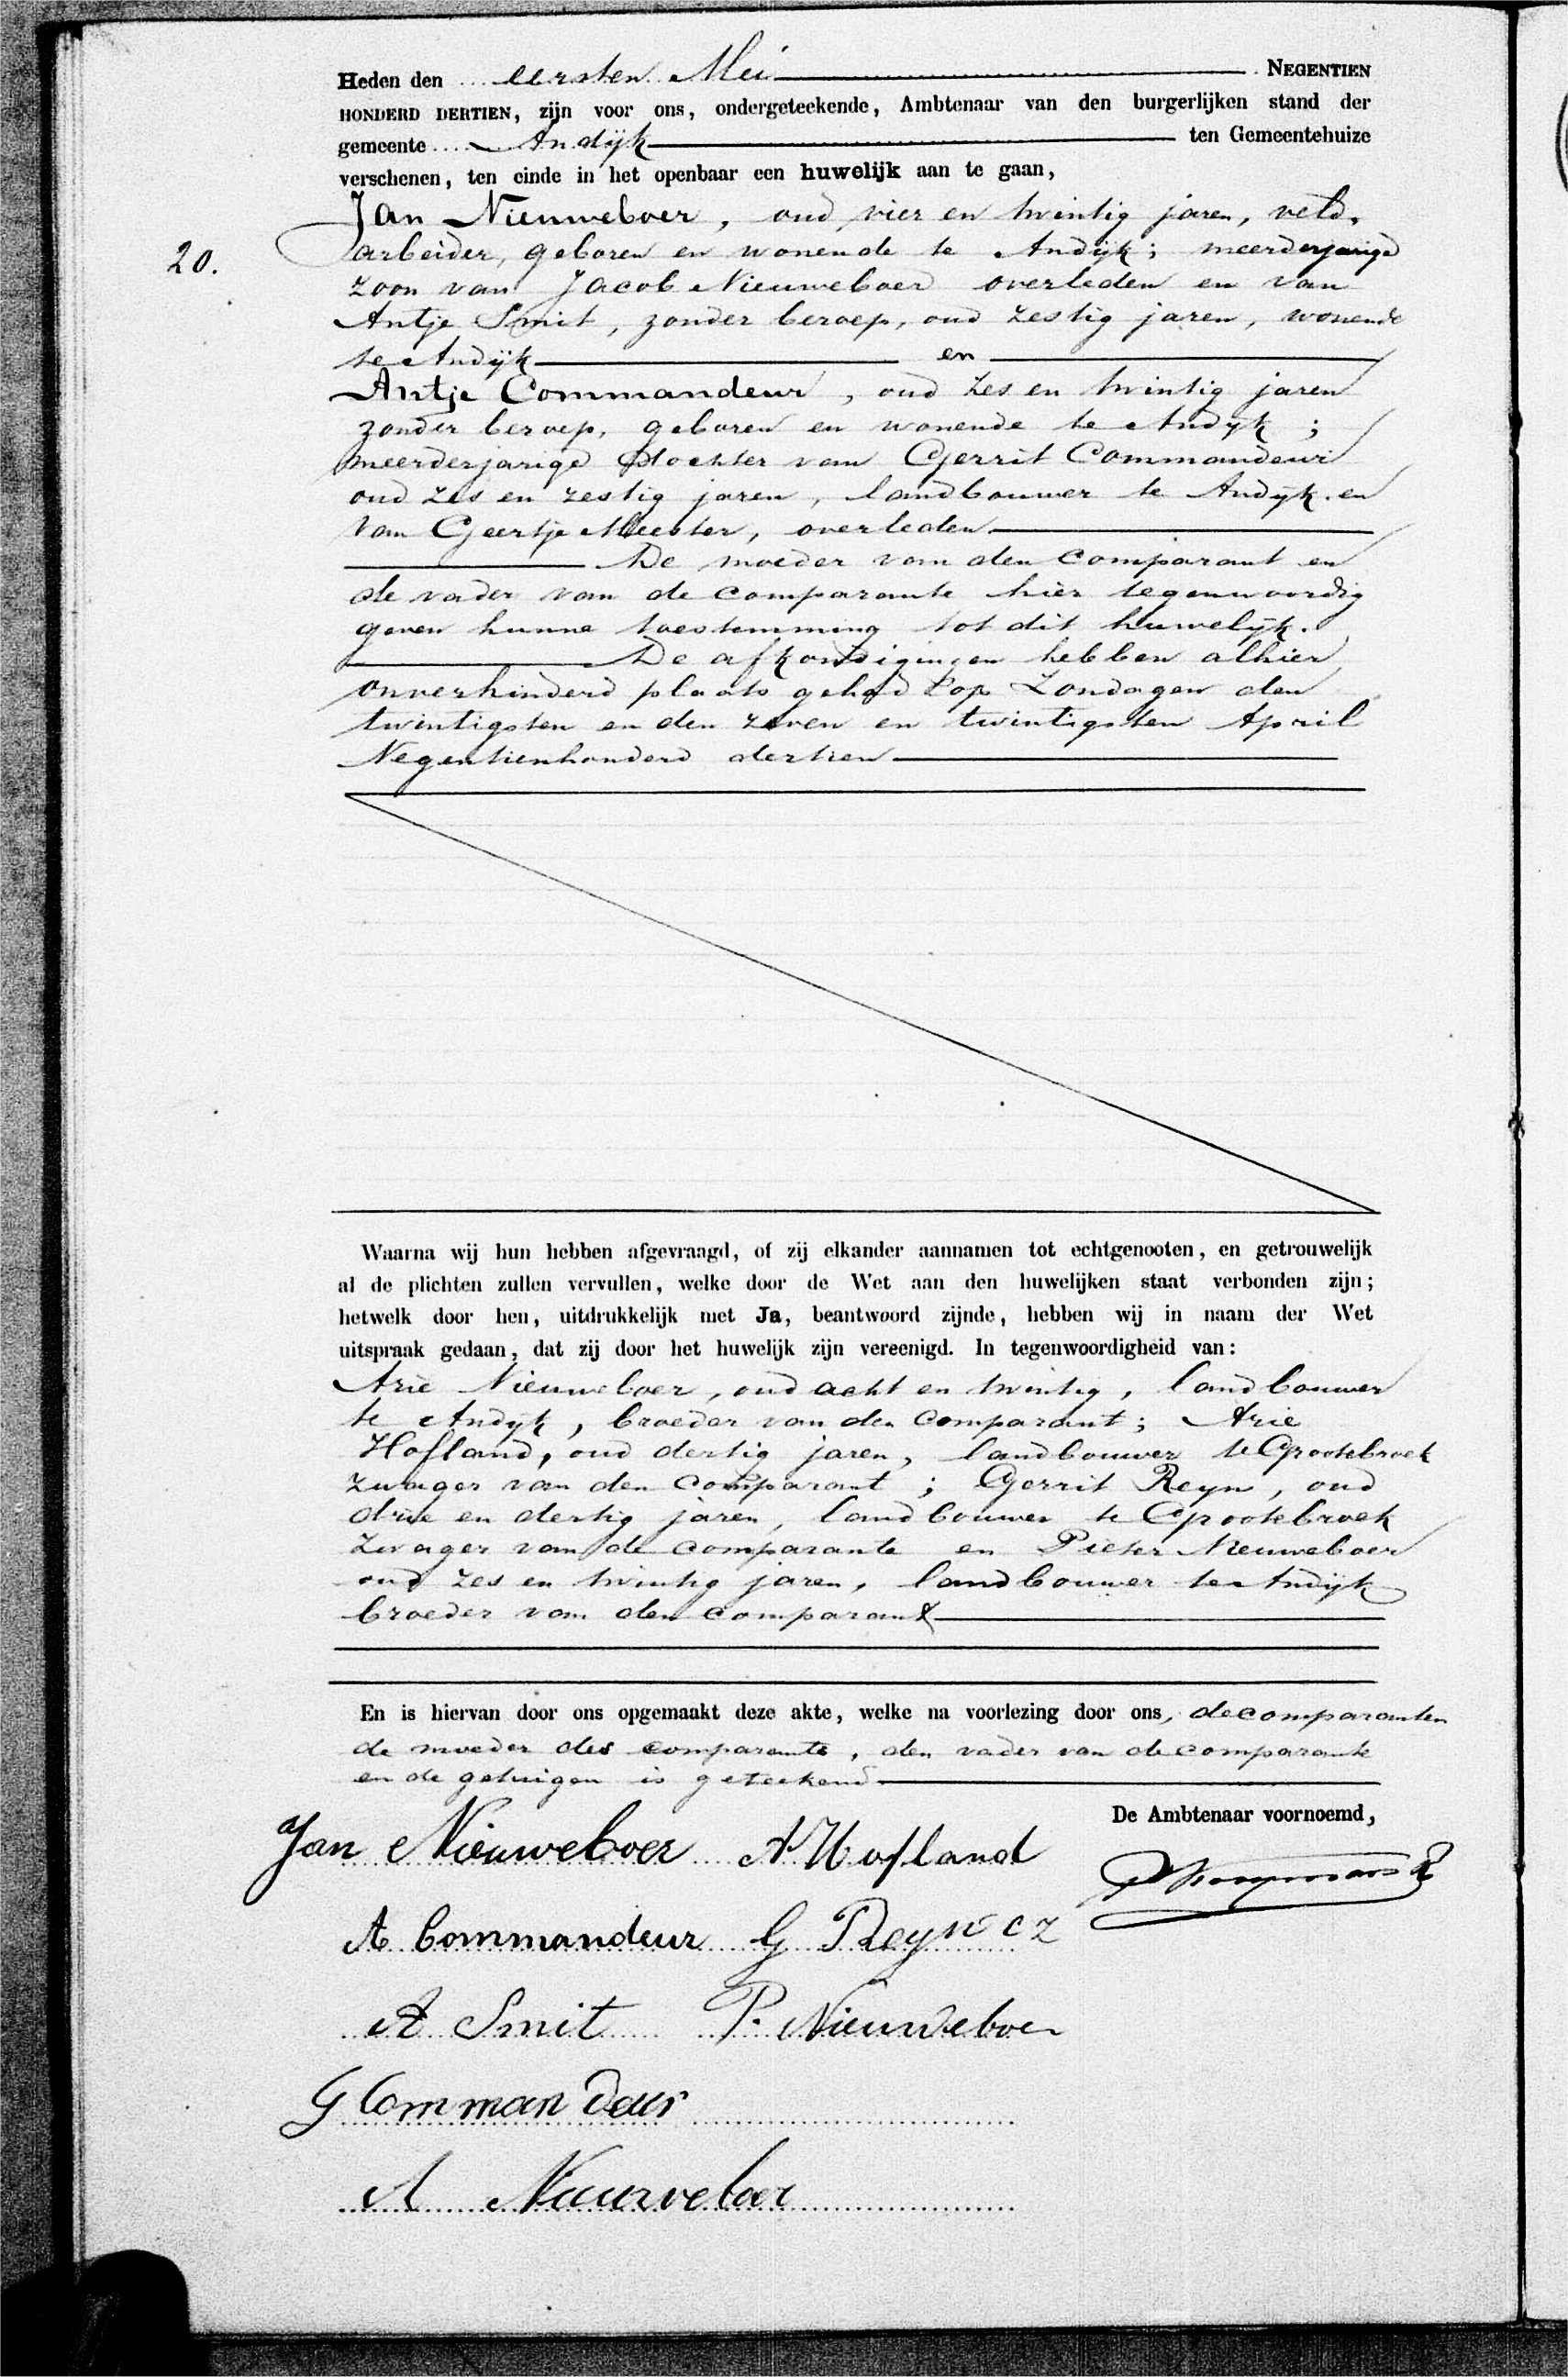 Heden den eersten Mei NEGENTIEN
HONDERD DERTIEN, zijn voor ons, ondergeteekende, Ambtenaar van den burgerlijken stand der
gemeente Andijk ten Gemeentehuize
verschenen, ten einde in het openbaar een huwelijk aan te gaan,
Jan Nieuweboer, oud vier en twintig jaren, veld-
20.
arbeider, geboren en wonende te Andijk; meerderjarige
zoon van Jacob Nieuweboer overleden en van
Antje Smit, zonder beroep, oud zestig jaren, wonende
te Andijk en
Antje Commandeur, oud zes en twintig jaren
zonder beroep, geboren en wonende te Andijk;
meerderjarige dochter van Gerrit Commandeur
oud zes en zestig jaren, landbouwer te Andijk en
van Geertje Meester, overleden
De moeder van den comparant en
de vader van de comparante hier tegenwoordig
geven hunne toestemming tot dit huwelijk.
De afkondigingen hebben alhier
onverhinderd plaats gehad op Zondagen den
twintigsten en den zeven en twintigsten April
Negentienhonderd dertien
Waarna wij hun hebben afgevraagd, of zij elkander aannamen tot echtgenooten, en getrouwelijk
al de plichten zullen vervullen, welke door de Wet aan den huwelijken staat verbonden zijn;
hetwelk door hen, uitdrukkelijk met Ja, beantwoord zijnde, hebben wij in naam der Wet
uitspraak gedaan, dat zij door het huwelijk zijn vereenigd. In tegenwoordigheid van:
Arie Nieuweboer, oud acht en twintig, landbouwer
te Andijk, broeder van den comparant; Arie
Hofland, oud dertig jaren, landbouwer te Grootebroek
zwager van den comparant; Gerrit Reyn, oud
drie en dertig jaren, landbouwer te Grootebroek
zwager van de comparante en Pieter Nieuweboer
oud zes en twintig jaren, landbouwer te Andijk
broeder van den comparant
En is hiervan door ons opgemaakt deze akte, welke na voorlezing door ons, de comparanten
de moeder des comparants, den vader van de comparante
en de getuigen is geteekend
De Ambtenaar voornoemd,
Jan Nieuweboer A Hofland
A Commandeur G Reyn Cz
A Smit P. Nieuweboer
G Commandeur
A Nieuweboer